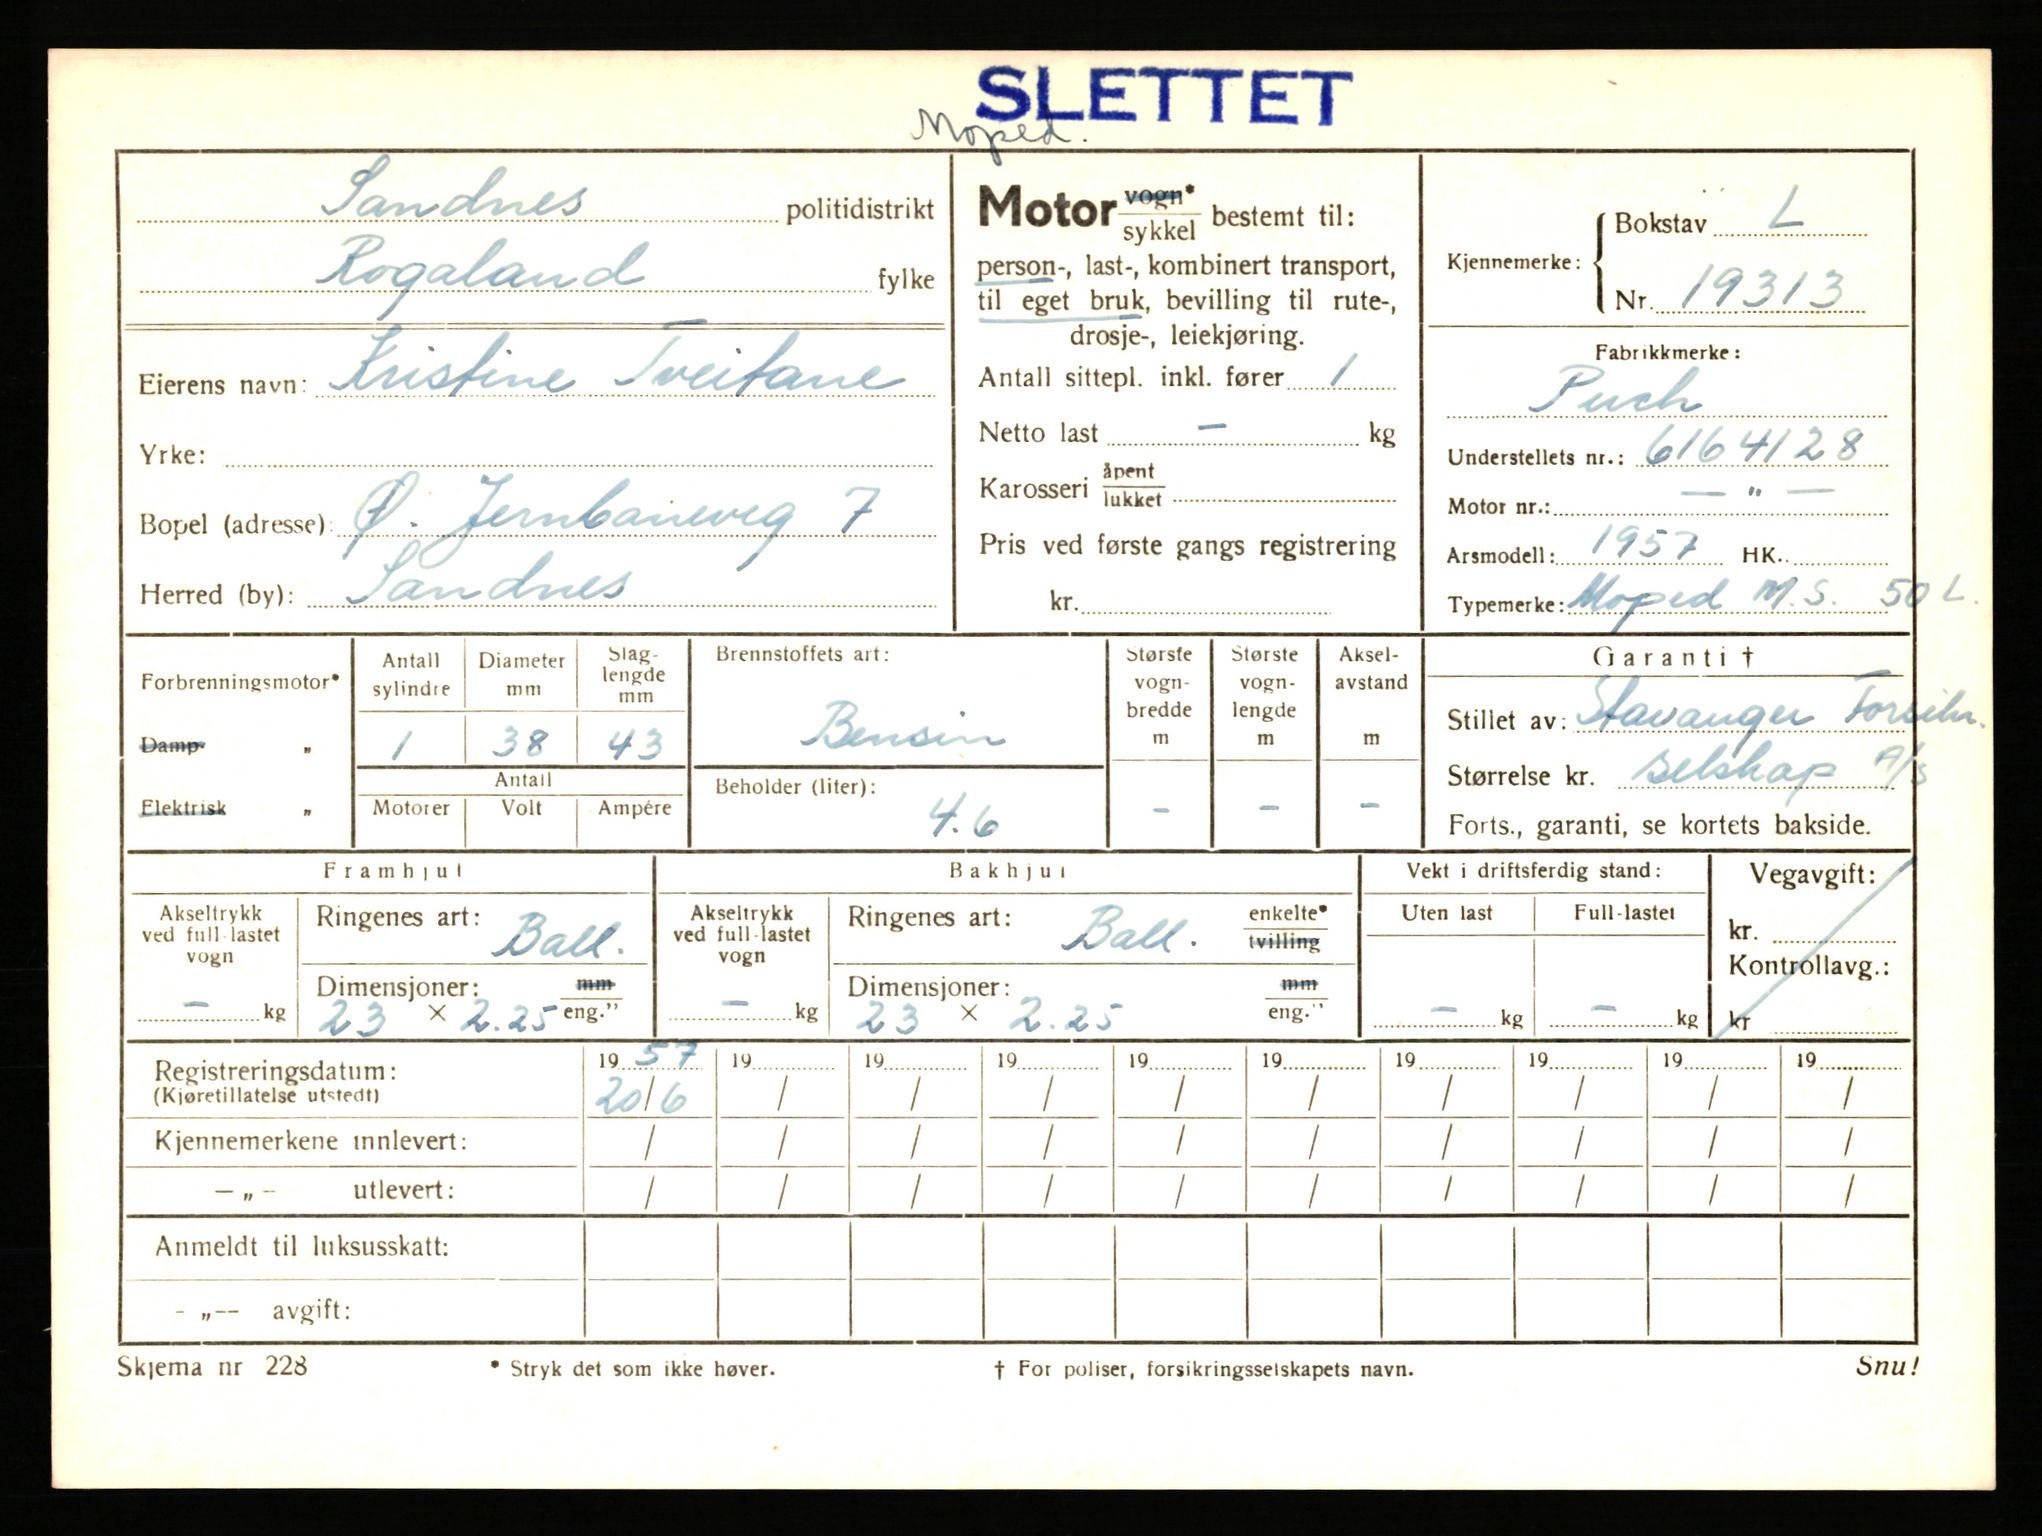 SLETTET
Moped.
Sandnes politidistrikt
Rogaland fylke
Eierens navn: Kristine Tveitane
Yrke:
Bopel (adresse): Ø. Jernbaneveg 7
Herred (by): Sandnes
Motor vogn* sykkel bestemt til:
person-, last-, kombinert transport,
til eget bruk, bevilling til rute-,
drosje-, leiekjøring.
Antall sittepl. inkl. fører 1
Netto last - kg
Karosseri åpent lukket
Pris ved første gangs registrering
kr.
Kjennemerke: Bokstav L
Nr. 19313
Fabrikkmerke:
Puch
Understellets nr.: 6164128
Motor nr.: — " —
Arsmodell: 1957 HK.
Typemerke: Moped M.S. 50 L.
Forbrenningsmotor*
Damp- "
Elektrisk "
Antall sylindre
Diameter mm
Slag- lengde mm
1 38 43
Antall
Motorer Volt Ampére
Brennstoffets art:
Bensin
Beholder (liter):
4.6
Største vogn- bredde m
-
Største vogn- lengde m
-
Aksel- avstand m
-
Garanti †
Stillet av: Stavanger Forsikr.
Størrelse kr. selskap A/S
Forts., garanti, se kortets bakside.
Framhjul
Akseltrykk ved full-lastet vogn
- kg
Ringenes art: Ball.
Dimensjoner: mm
23 × 2.25 eng."
Bakhjul
Akseltrykk ved full-lastet vogn
- kg
Ringenes art: Ball. enkelte* tvilling
Dimensjoner: mm
23 × 2.25 eng."
Vekt i driftsferdig stand:
Uten last Full-lastet
- kg - kg
Vegavgift:
kr.
Kontrollavg.:
kr
Registreringsdatum: 19 57 19 19 19 19 19 19 19 19 19
(Kjøretillatelse utstedt) 20/6 / / / / / / / / /
Kjennemerkene innlevert: / / / / / / / / / /
— „ - utlevert: / / / / / / / / / /
Anmeldt til luksusskatt:
- „-- avgift:
Skjema nr 228 * Stryk det som ikke høver. † For poliser, forsikringsselskapets navn. Snu!